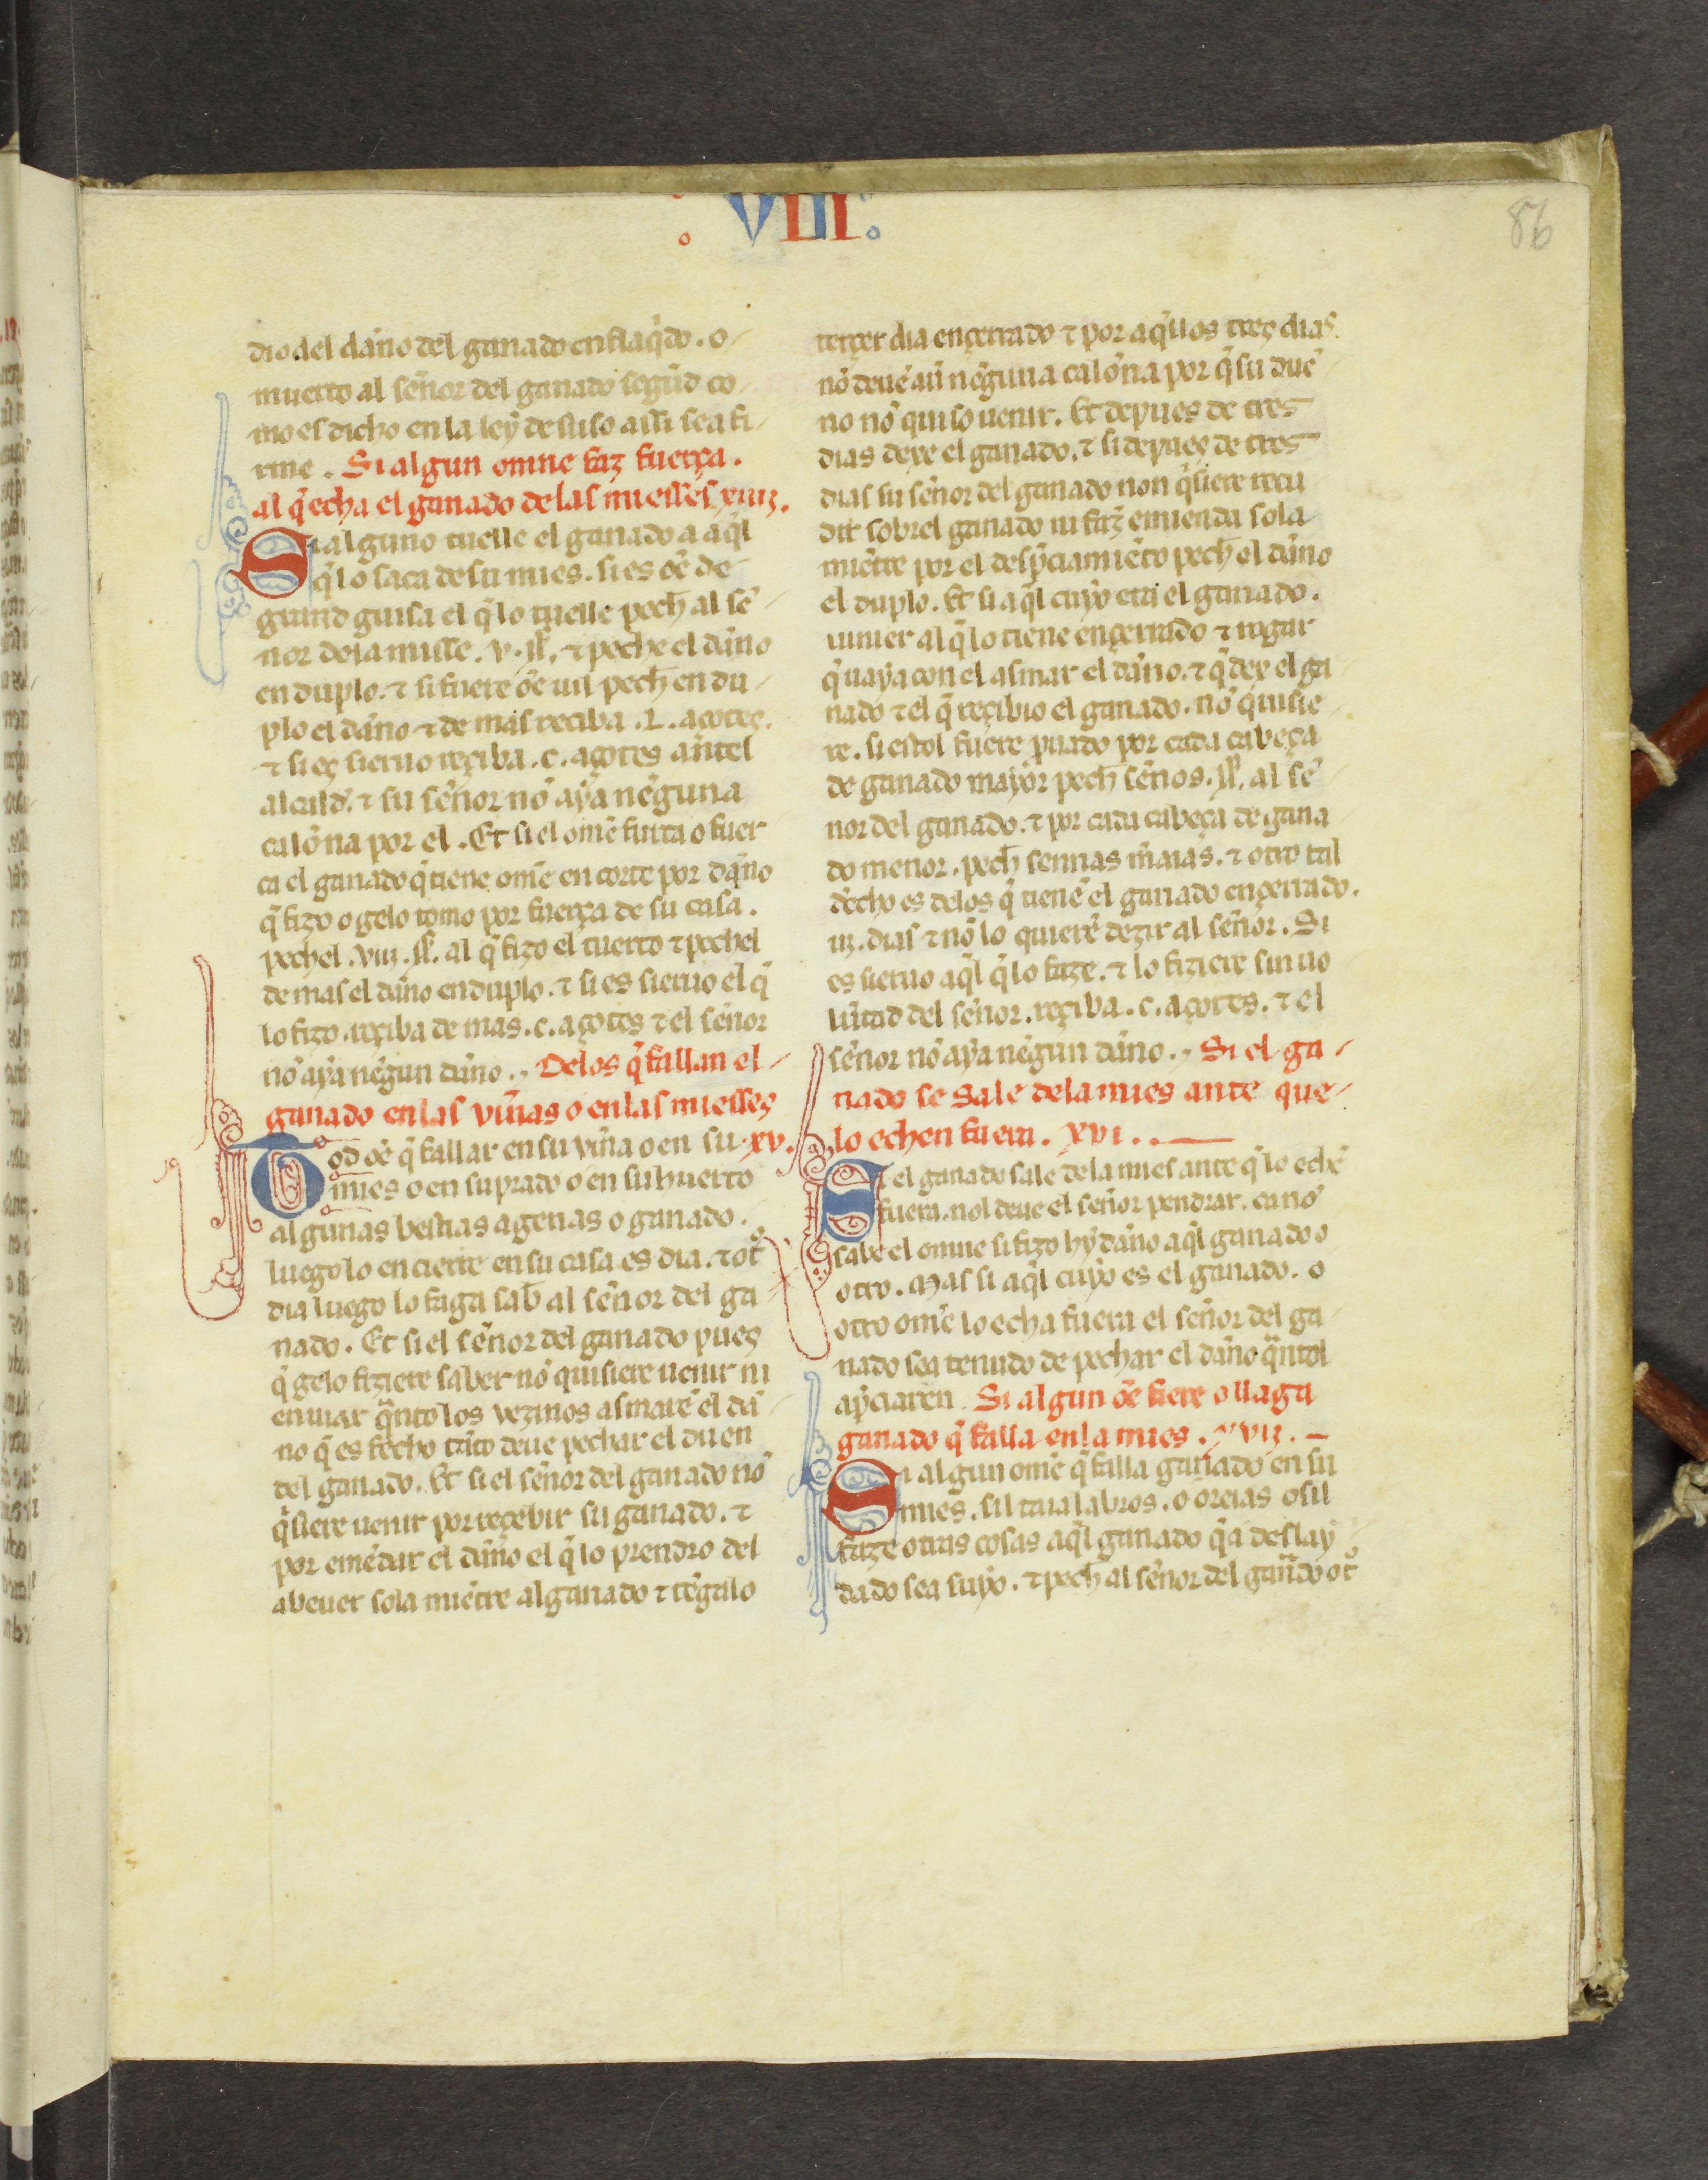 VIII
86
dio del dan̄o del ganado enflaq̄do. o
muerto al sen̄or del ganado segūd co
mo es dicho en la leẏ de suso assi sea fi
rme. Si algun omne faz fuerça.
al q̄ echa el ganado de las miesses xiiij.
Si alguno tuelle el ganado a aq̄l
q̄ lo saca de su mies. si es oē de
grand guisa el q̄ lo tuelle pech̄ al se᷈
nor de la miesse. v. ss̄. ⁊ peche el dan̄o
en duplo. ⁊ si fuere oē uil pech̄ en du
plo el dan̄o ⁊ de mas reciba .L. açotes.
⁊ si es sieruo reçiba .c. açotes antel
alcald̄. ⁊ su sen̄or nō aẏa nēguna
calōna por el. Et si el omē furta o fuer
ca el ganado q̄ tiene omē en corte por dan̄o
q̄ fizo o gelo tomo por fuerça de su casa.
pechel .viij. ss̄. al q̄ fizo el tuerto ⁊ pechel
de mas el dan̄o en duplo. ⁊ si es sieruo el q̄
lo fizo. reçiba de mas .c. açotes ⁊ el sen̄or
nō aẏa nēgun dan̄o. Delos q̄ fallan el
ganado en las vin̄as o en las miesses
Tod oē q̄ fallar en su vin̄a o en su xv.
mies o en su prado o en su huerto
algunas bestias agenas o ganado.
luego lo encierre en su casa es dia. ⁊ ot°
dia luego lo faga sab̄ al sen̄or del ga
nado. Et si el sen̄or del ganado pues
q̄ gelo fiziere saber nō quisiere uenir ni
enuiar q̄nto los vezinos asmarē el da᷈
no q̄ es fecho tāto deue pechar el duen̄
del ganado. Et si el sen̄or del ganado nō
q̄siere uenir por reçebir su ganado. ⁊
por emēdar el dan̄o el q̄ lo prendro del
a beuer sola miētre al ganado ⁊ tēgalo
terçer dia ençerrado ⁊ por aq̄llos tres dias.
nō deue au᷑ nēguna calōna por q̄ su due᷈
no nō quiso uenir. Et depues de tres
dias dexe el ganado. ⁊ si depues de tres
dias su sen̄or del ganado non q̄siere recu
dir sobrel ganado ni faz emienda sola
miētre por el desp̄ciamiēto pech̄ el dan̄o
el duplo. Et si aq̄l cuẏo era el ganado.
uinier al q̄ lo tiene ençerrado ⁊ rogar
q̄ uaẏa con el asmar el dan̄o. ⁊ q̄ dex el ga
nado ⁊ el q̄ reçibio el ganado. nō quisie
re. si estol fuere puado por cada cabeça
de ganado maẏor pech̄ sen̄os. ss̄. al se᷈
nor del ganado. ⁊ por cada cabeça de gana
do menor. pech̄ sennas m̄aias. ⁊ otro tal
d̄echo es delos q̄ tienē el ganado ençerrado.
iij. dias ⁊ nō lo quierē dezir al sen̄or. Si
es sieruo aq̄l q̄ lo faze. ⁊ lo fiziere sin uo
lūtad del sen̄or. reçiba .c. açotes. ⁊ el
sen̄or nō aẏa nēgun dan̄o. Si el ga
nado se sale dela mies ante que
lo echen fuera. xvi.
Si el ganado sale dela mies ante q̄ lo echē
fuera. nol deue el sen̄or pendrar. ca nō
sabe el omne si fizo hẏ dan̄o aq̄l ganado o
otro. Mas si aq̄l cuẏo es el ganado. o
otro omē lo echa fuera el sen̄or del ga
nado sea tenudo de pechar el dan̄o q̄ntol
ap̄ciaren. Si algun oē fiere o llaga
ganado q̄ falla en la mies. xvij.
Si algun omē q̄ falla ganado en su
mies. sil taia labros. o oreias o sil
faze otras cosas aq̄l ganado q̄ a deslaẏ
dado sea suẏo. ⁊ pech̄ al sen̄or del ganado ot°